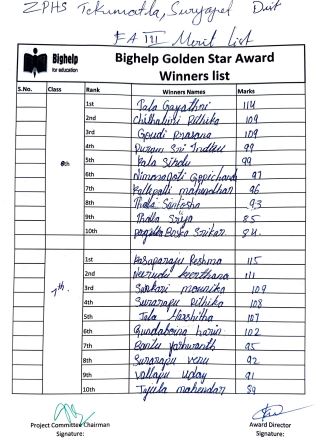 ZPHS Tekumatla, Suryapet Dist
FA III Merit List
Bighelp
for education
Bighelp Golden Star Award
Winners list
S.No. Class Rank Winners Names Marks
6th
1st Pala Gayathri 114
2nd Chithaluri Rithika 109
3rd Goudi prasana 109
4th Puram Sri Indhu 99
5th Kala Sindu 99
6th Gopichandu 97
7th Kallepalli mahendhar 96
8th Thalla Santosha 93
9th Thalla Srija 85
10th Bosco Srikar 84
7th
1st Kasaparaju Reshma 115
2nd keerthana 111
3rd Sunkari mounika 109
4th Surarapu Rithika 108
5th Tala Harshitha 107
6th Gundaboina harini 102
7th Bantu yashwanth 95
8th Surarapu venu 92
9th Vallapu uday 91
10th mahendar 89
Project Committee Chairman
Signature:
Award Director
Signature: